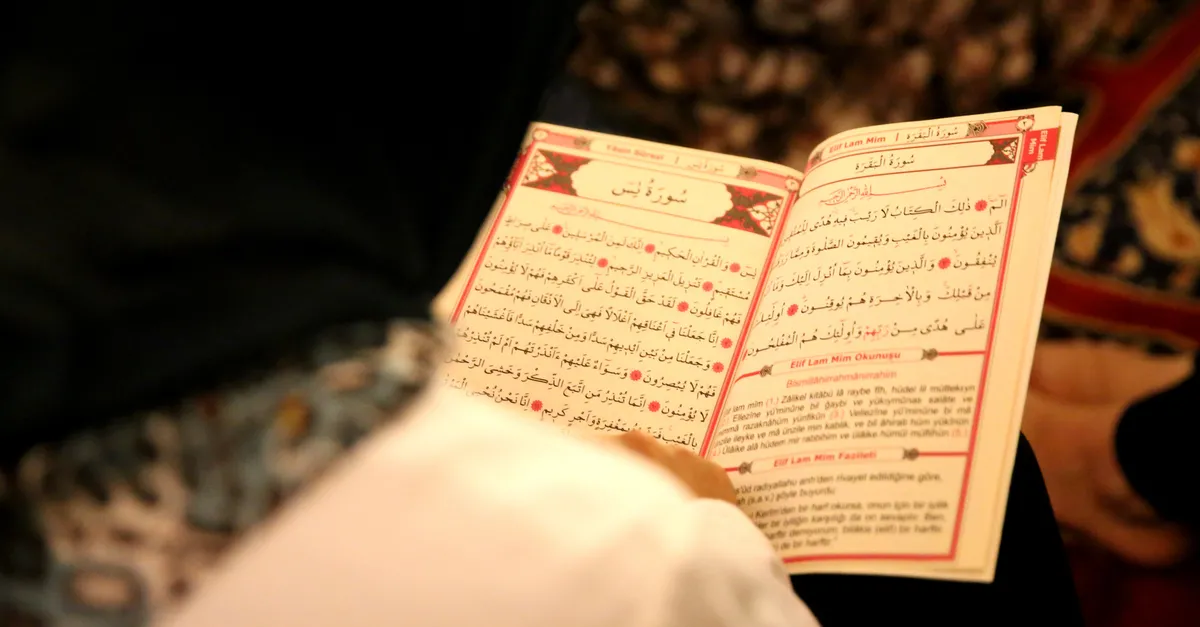 Elif Lam Mim | سُورَةُ الْبَقَرَةِ
٢
Elif Lam
Mim
سُورَةُ الْبَقَرَةِ
الٓمٓ ذٰلِكَ الْكِتَابُ لَا رَيْبَ فِيهِ هُدًى لِلْمُتَّقِينَ
الَّذِينَ يُؤْمِنُونَ بِالْغَيْبِ وَيُقِيمُونَ الصَّلٰوةَ وَمِمَّا
يُنْفِقُونَ وَالَّذِينَ يُؤْمِنُونَ بِمَا أُنْزِلَ إِلَيْكَ وَمَا
مِنْ قَبْلِكَ وَبِالْاٰخِرَةِ هُمْ يُوقِنُونَ
عَلٰى هُدًى مِنْ رَبِّهِمْ وَأُولٰئِكَ هُمُ الْمُفْلِحُونَ
Elif Lam Mim Okunuşu
Bismillâhirrahmânirrahîm
lif lam mîm (1.) Zâlikel kitâbü lâ raybe fîh, hüdel lil müttekıyn
Ellezîne yü'minûne bil ğaybi ve yükıymûnas salâte ve
immâ razaknâhüm yünfikûn (3.) Vellezîne yü'minûne bi mâ
nzile ileyke ve mâ ünzile min kablik, ve bil âhirati hüm yûkînûn
.) Ülâike alâ hüdem mir rabbihim ve ülâike hümül müflihûn (5.)
Elif Lam Mim Fazileti
'ûd radıyallahu anh'den rivayet edildiğine göre,
ah (s.a.v.) şöyle buyurdu:
Kerim'den bir harf okursa, onun için bir iyilik
Her bir iyiliğin karşılığı da on sevaptır. Ben,
harftir demiyorum; bilâkis (elif) bir harftir,
de bir harftir."
Yâsin Sûresi | سُورَةُ يٰسٓ
سُورَةُ يٰسٓ
يٰسٓ وَالْقُرْاٰنِ الْحَكِيمِ إِنَّكَ لَمِنَ الْمُرْسَلِينَ عَلٰى صِرَاطٍ
مُسْتَقِيمٍ تَنْزِيلَ الْعَزِيزِ الرَّحِيمِ لِتُنْذِرَ قَوْمًا مَا أُنْذِرَ اٰبَاؤُهُمْ
فَهُمْ غَافِلُونَ لَقَدْ حَقَّ الْقَوْلُ عَلٰى أَكْثَرِهِمْ فَهُمْ لَا يُؤْمِنُونَ
إِنَّا جَعَلْنَا فِي أَعْنَاقِهِمْ أَغْلَالًا فَهِيَ إِلَى الْأَذْقَانِ فَهُمْ مُقْمَحُونَ
وَجَعَلْنَا مِنْ بَيْنِ أَيْدِيهِمْ سَدًّا وَمِنْ خَلْفِهِمْ سَدًّا فَأَغْشَيْنَاهُمْ
فَهُمْ لَا يُبْصِرُونَ وَسَوَاءٌ عَلَيْهِمْ ءَأَنْذَرْتَهُمْ أَمْ لَمْ تُنْذِرْهُمْ
لَا يُؤْمِنُونَ إِنَّمَا تُنْذِرُ مَنِ اتَّبَعَ الذِّكْرَ وَخَشِيَ الرَّحْمٰنَ
بِالْغَيْبِ وَأَجْرٍ كَرِيمٍ إِنَّا نَحْنُ نُحْيِي الْمَوْتٰى